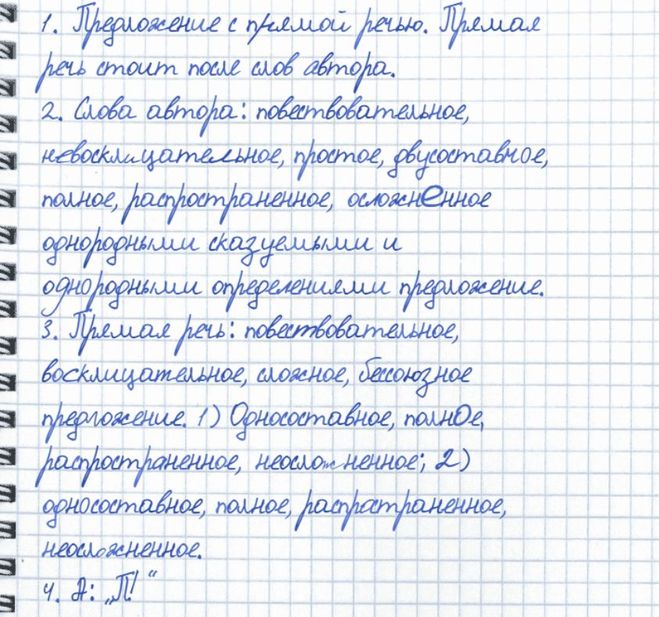 1. Предложение с прямой речью. Прямая
речь стоит после слов автора.
2. Слова автора: повествовательное,
невосклицательное, простое, двусоставное,
полное, распространенное, осложненное
однородными сказуемыми и
однородными определениями предложение.
3. Прямая речь: повествовательное,
восклицательное, сложное, бессоюзное
предложение. 1) Односоставное, полное,
распространенное, неосложненное; 2)
односоставное, полное, распространенное,
неосложненное.
4. А: „П!“